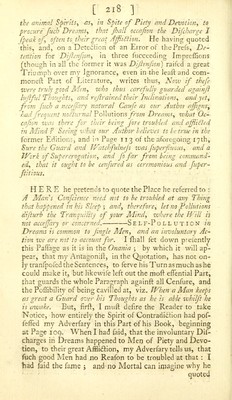 [ 218 ]
the animal Spirits, as, in Spite of Piety and Devotion, to
procure such Dreams, that shall occasion the Discharge I
speak of, often to their great Affliction. He having quoted
this, and, on a Detection of an Error of the Press, De-
tention for Distension, in three succeeding Impressions
(though in all the former it was Distension) raised a great
Triumph over my Ignorance, even in the least and com-
monest Part of Literature, writes thus, Now if these
were truly good Men, who thus carefully guarded against
lustful Thoughts, and restrained their Inclinations, and yet,
from such a necessary natural Cause as our Author assigns,
had frequent nocturnal Pollutions from Dreams, what Oc-
casion was there for their being sore troubled and afflicted
in Mind? Seeing what our Author believes to be true in the
former Editions, and in Page 113 of the aforegoing 13th,
Sure the Guard and Watchfulness was superfluous, and a
Work of Supererogation, and so far from being commend-
ed, that it ought to be censured as ceremonious and super-
stitious.
HERE he pretends to quote the Place he referred to :
A Man's Conscience need not to be troubled at any Thing
that happened in his Sleep; and, therefore, let no Pollutions
disturb the Tranquility of your Mind, where the Will is
not accessary or concerned. ———SELF-POLLUTION in
Dreams is common to single Men, and an involuntary Ac-
tion we are not to account for. I shall set down presently
this Passage as it is in the Onania ; by which it will ap-
pear, that my Antagonist, in the Quotation, has not on-
ly transposed the Sentences, to serve his Turn as much as he
could make it, but likewise left out the most essential Part,
that guards the whole Paragraph against all Censure, and
the Possibility of being cavilled at, viz. When a Man keeps
as great a Guard over his Thoughts as he is able whilst he
is awake. But, first, I must desire the Reader to take
Notice, how entirely the Spirit of Contradiction had pos-
sessed my Adversary in this Part of his Book, beginning
at Page 100. When I had said, that the involuntary Dis-
charges in Dreams happened to Men of Piety and Devo-
tion, to their great Affliction, my Adversary tells us, that
such good Men had no Reason to be troubled at that : I
had said the same ; and no Mortal can imagine why he
quoted